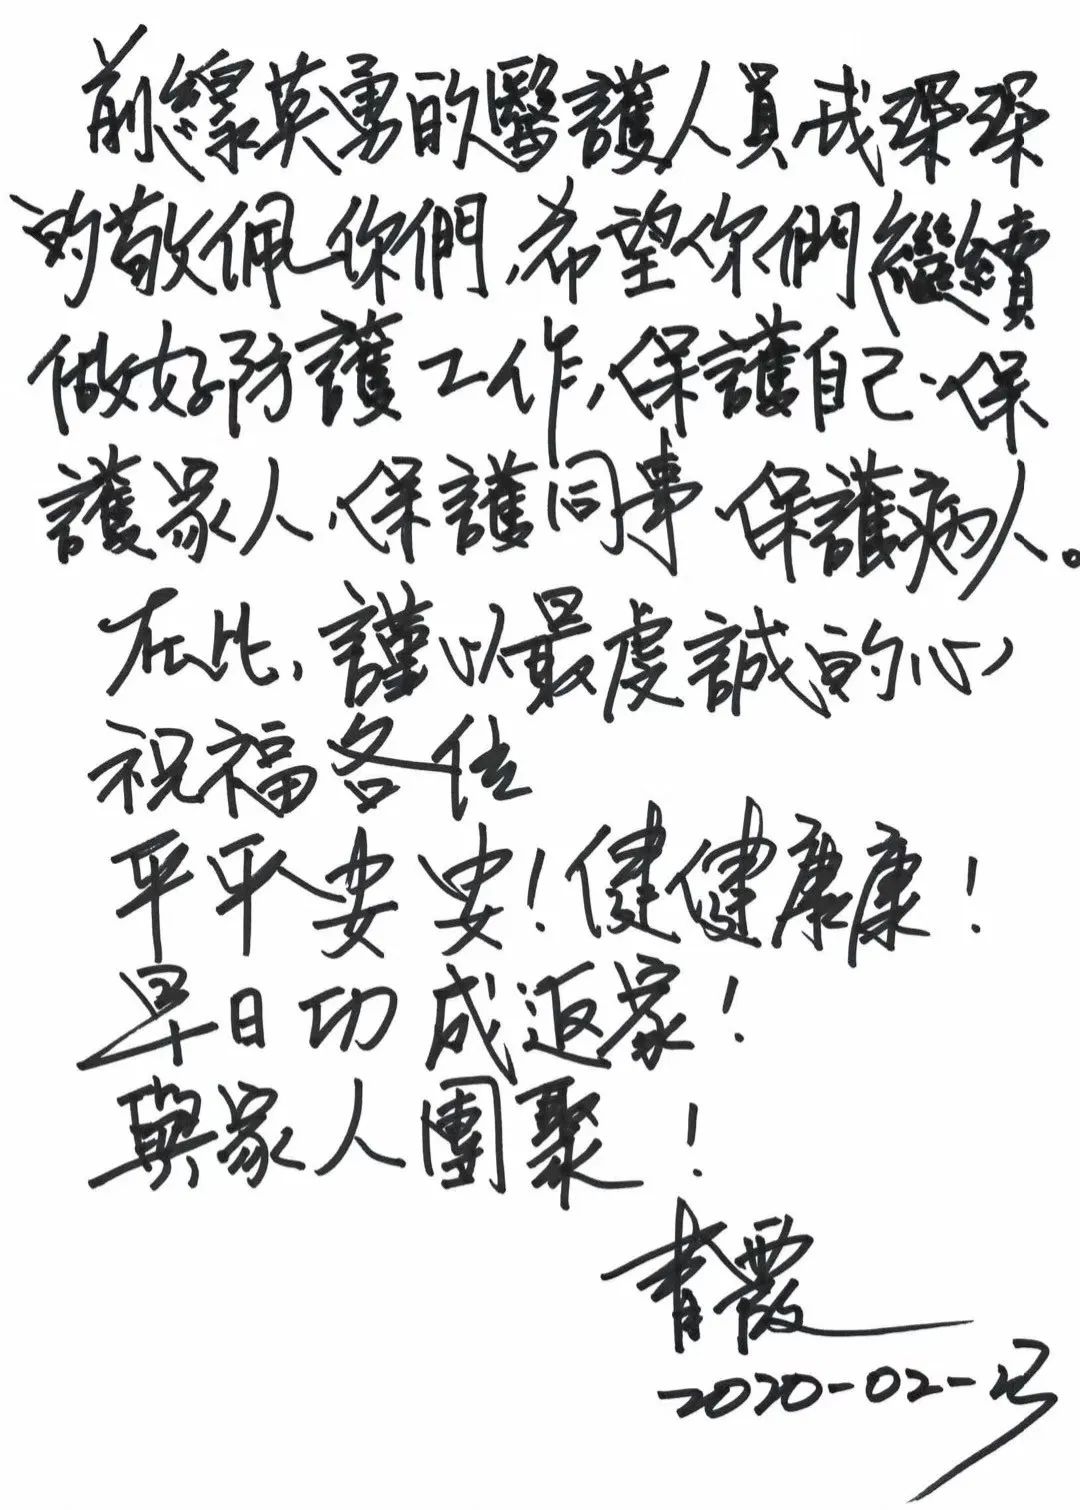 前線英勇的醫護人員我深深
的敬佩你們,希望你們繼續
做好防護工作,保護自己.保
護家人.保護同事.保護病人。
在此,謹以最虔誠的心
祝福各位
平平安安!健健康康!
早日功成返家!
與家人團聚!
青霞
2020-02-